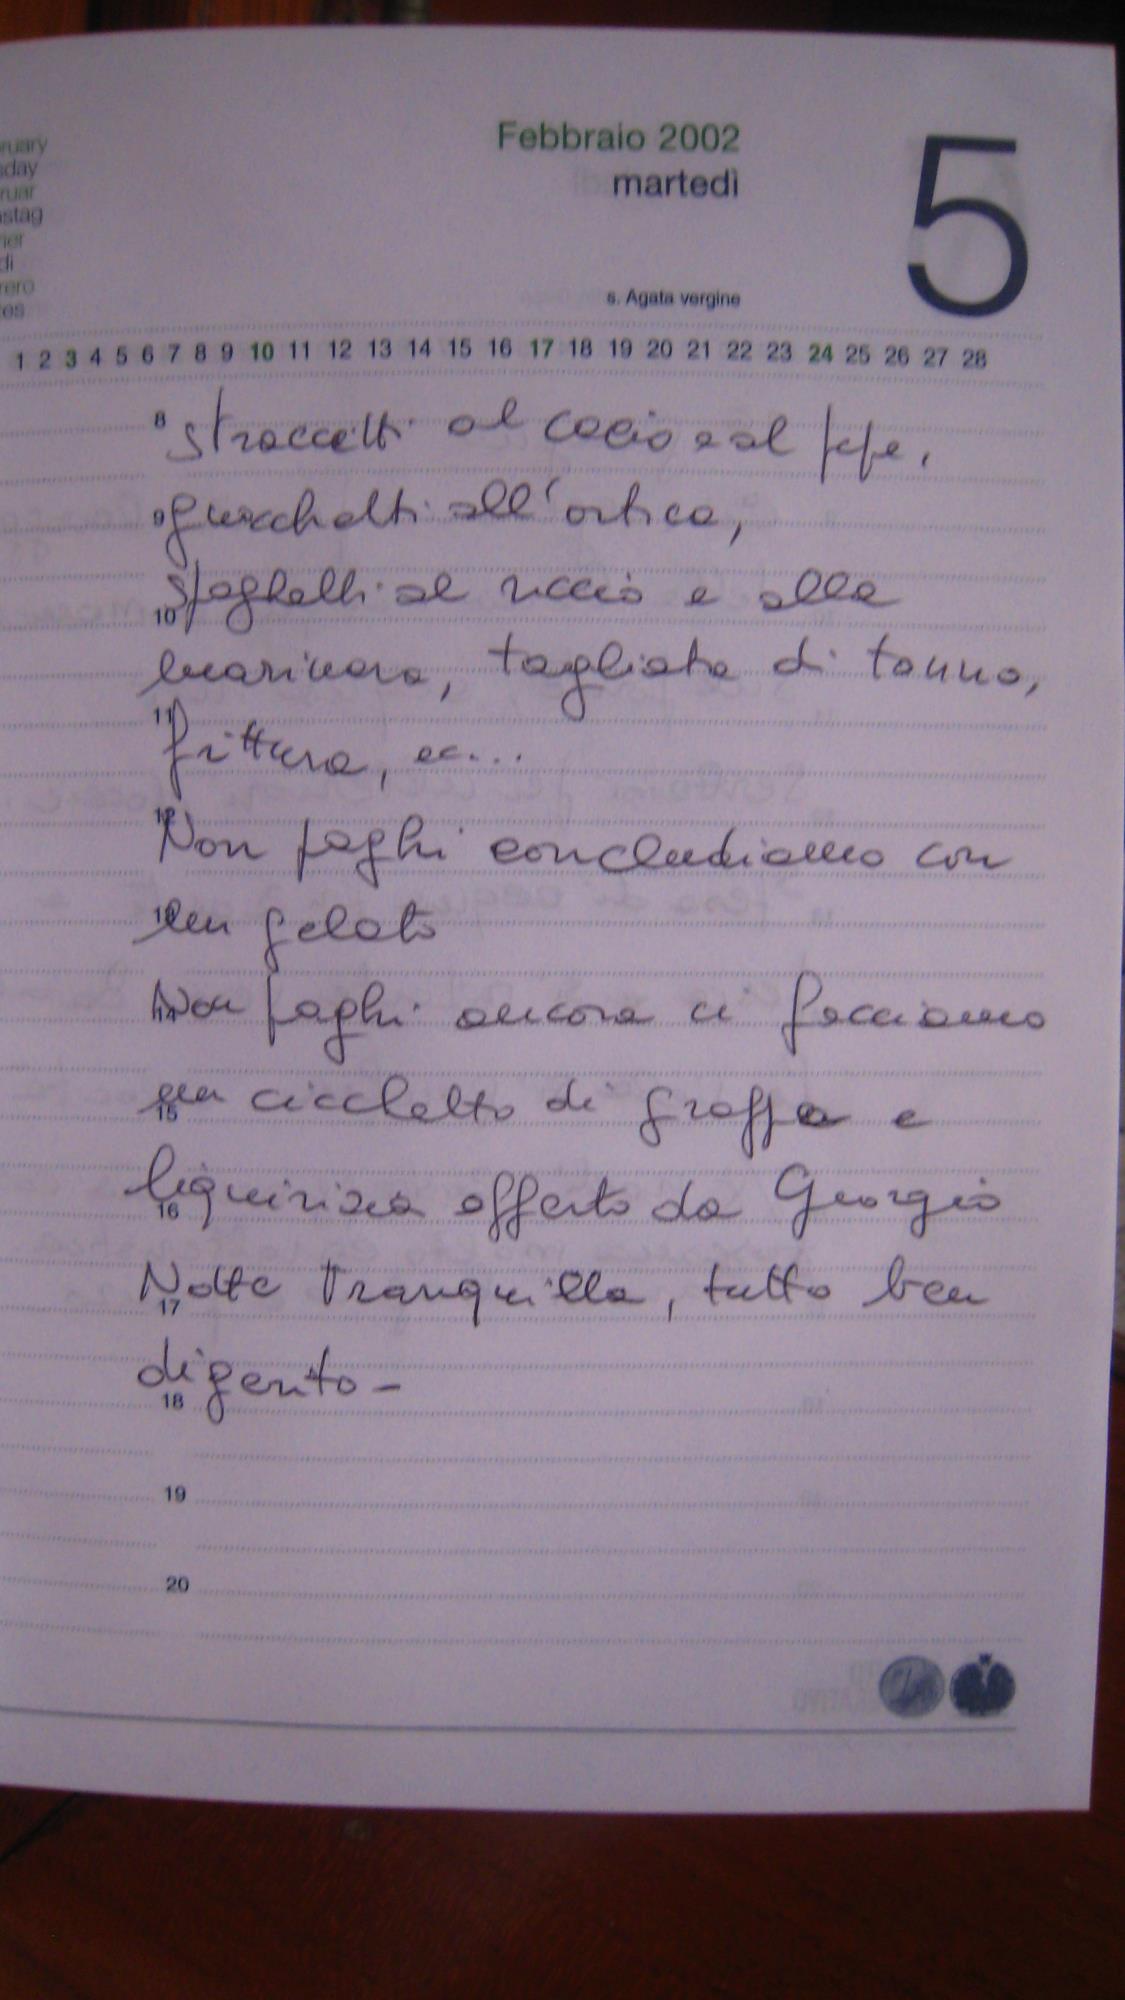 ruary
sday
ruar
stag
rier
di
rero
tes
Febbraio 2002
martedì
5
s. Agata vergine
1 2 3 4 5 6 7 8 9 10 11 12 13 14 15 16 17 18 19 20 21 22 23 24 25 26 27 28
8 straccetti al cacio e al pepe,
9 gnocchetti all'ortica,
spaghetti al riccio e alla
10
marinara, tagliata di tonno,
11
frittura, ec...
12
Non paghi concludiamo con
13
un gelato
14
Non paghi ancora ci facciamo
un cicchetto di grappa e
15
liquirizia offerto da Giorgio
16
Notte tranquilla, tutto ben
17
digerito -
18
19
20